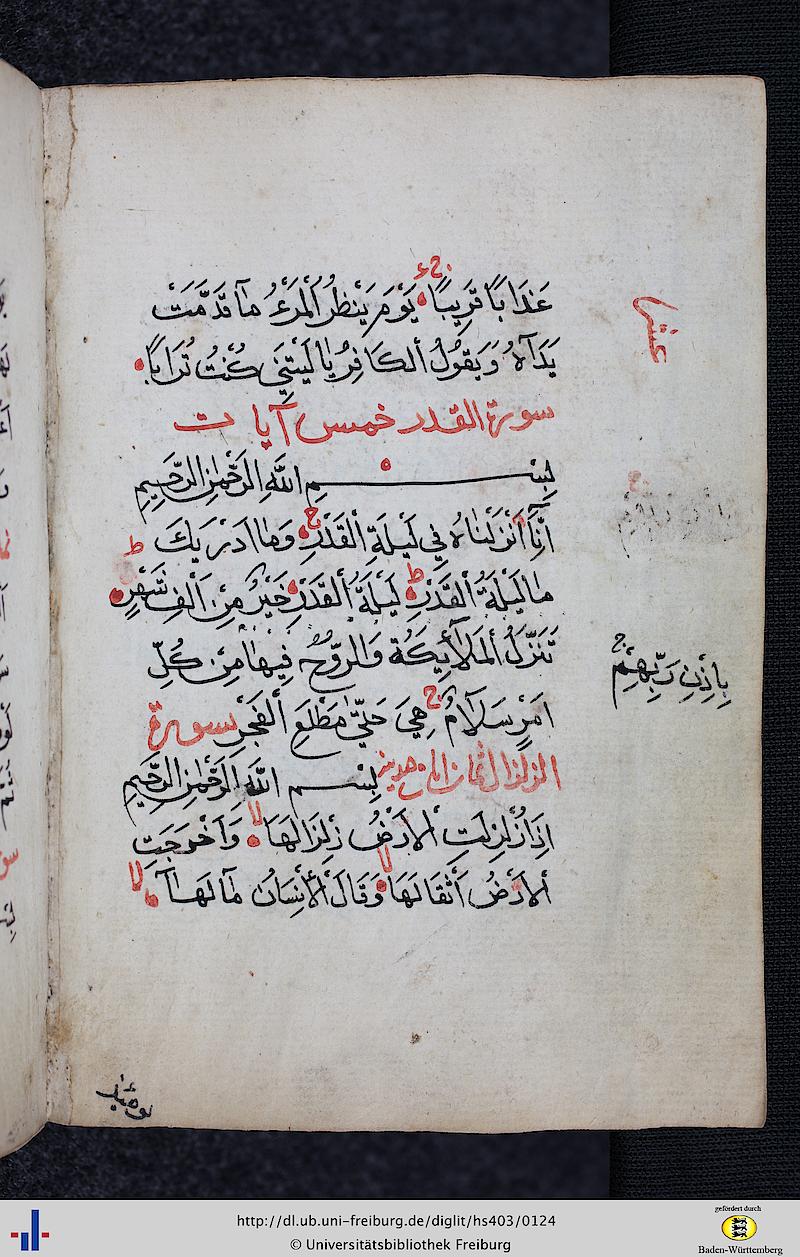 عَذَابًا قَرِيبًا يَوْمَ يَنْظُرُ الْمَرْءُ مَآ قَدَّمَتْ
يَدَاهُ وَيَقُولُ الكَافِرُ يٰالَيْتَنِي كُنْتُ تُرَابًا
سورة القدر خمس آيات
بِسْمِ اللَّهِ الرَّحْمٰنِ الرَّحِيمِ
اَنَّآ اَنْزَلْنَاهُ فِي لَيْلَةِ الْقَدْرِ ج وَمَا اَدْرٰيكَ
مَا لَيْلَةُ الْقَدْرِ ط لَيْلَةُ الْقَدْرِ خَيْرٌ مِنْ اَلْفِ شَهْرٍ ط
تَنَزَّلُ الْمَلَآئِكَةُ وَالرُّوحُ فِيهَا مِنْ كُلِّ
بِاِذْنِ رَبِّهِمْ ج
اَمْرٍ سَلَامٌ ج هِيَ حَتَّىٰ مَطْلَعِ الْفَجْرِ سورة
الزلزال ثمان
بِسْمِ اللَّهِ الرَّحْمٰنِ الرَّحِيمِ
اِذَا زُلْزِلَتِ الْاَرْضُ زِلْزَالَهَا لا وَاَخْرَجَتِ
الْاَرْضُ اَثْقَالَهَا لا وَقَالَ الْاِنْسَانُ مَا لَهَا لا
يومئذ
http://dl.ub.uni-freiburg.de/diglit/hs403/0124
© Universitätsbibliothek Freiburg
gefördert durch
Baden-Württemberg